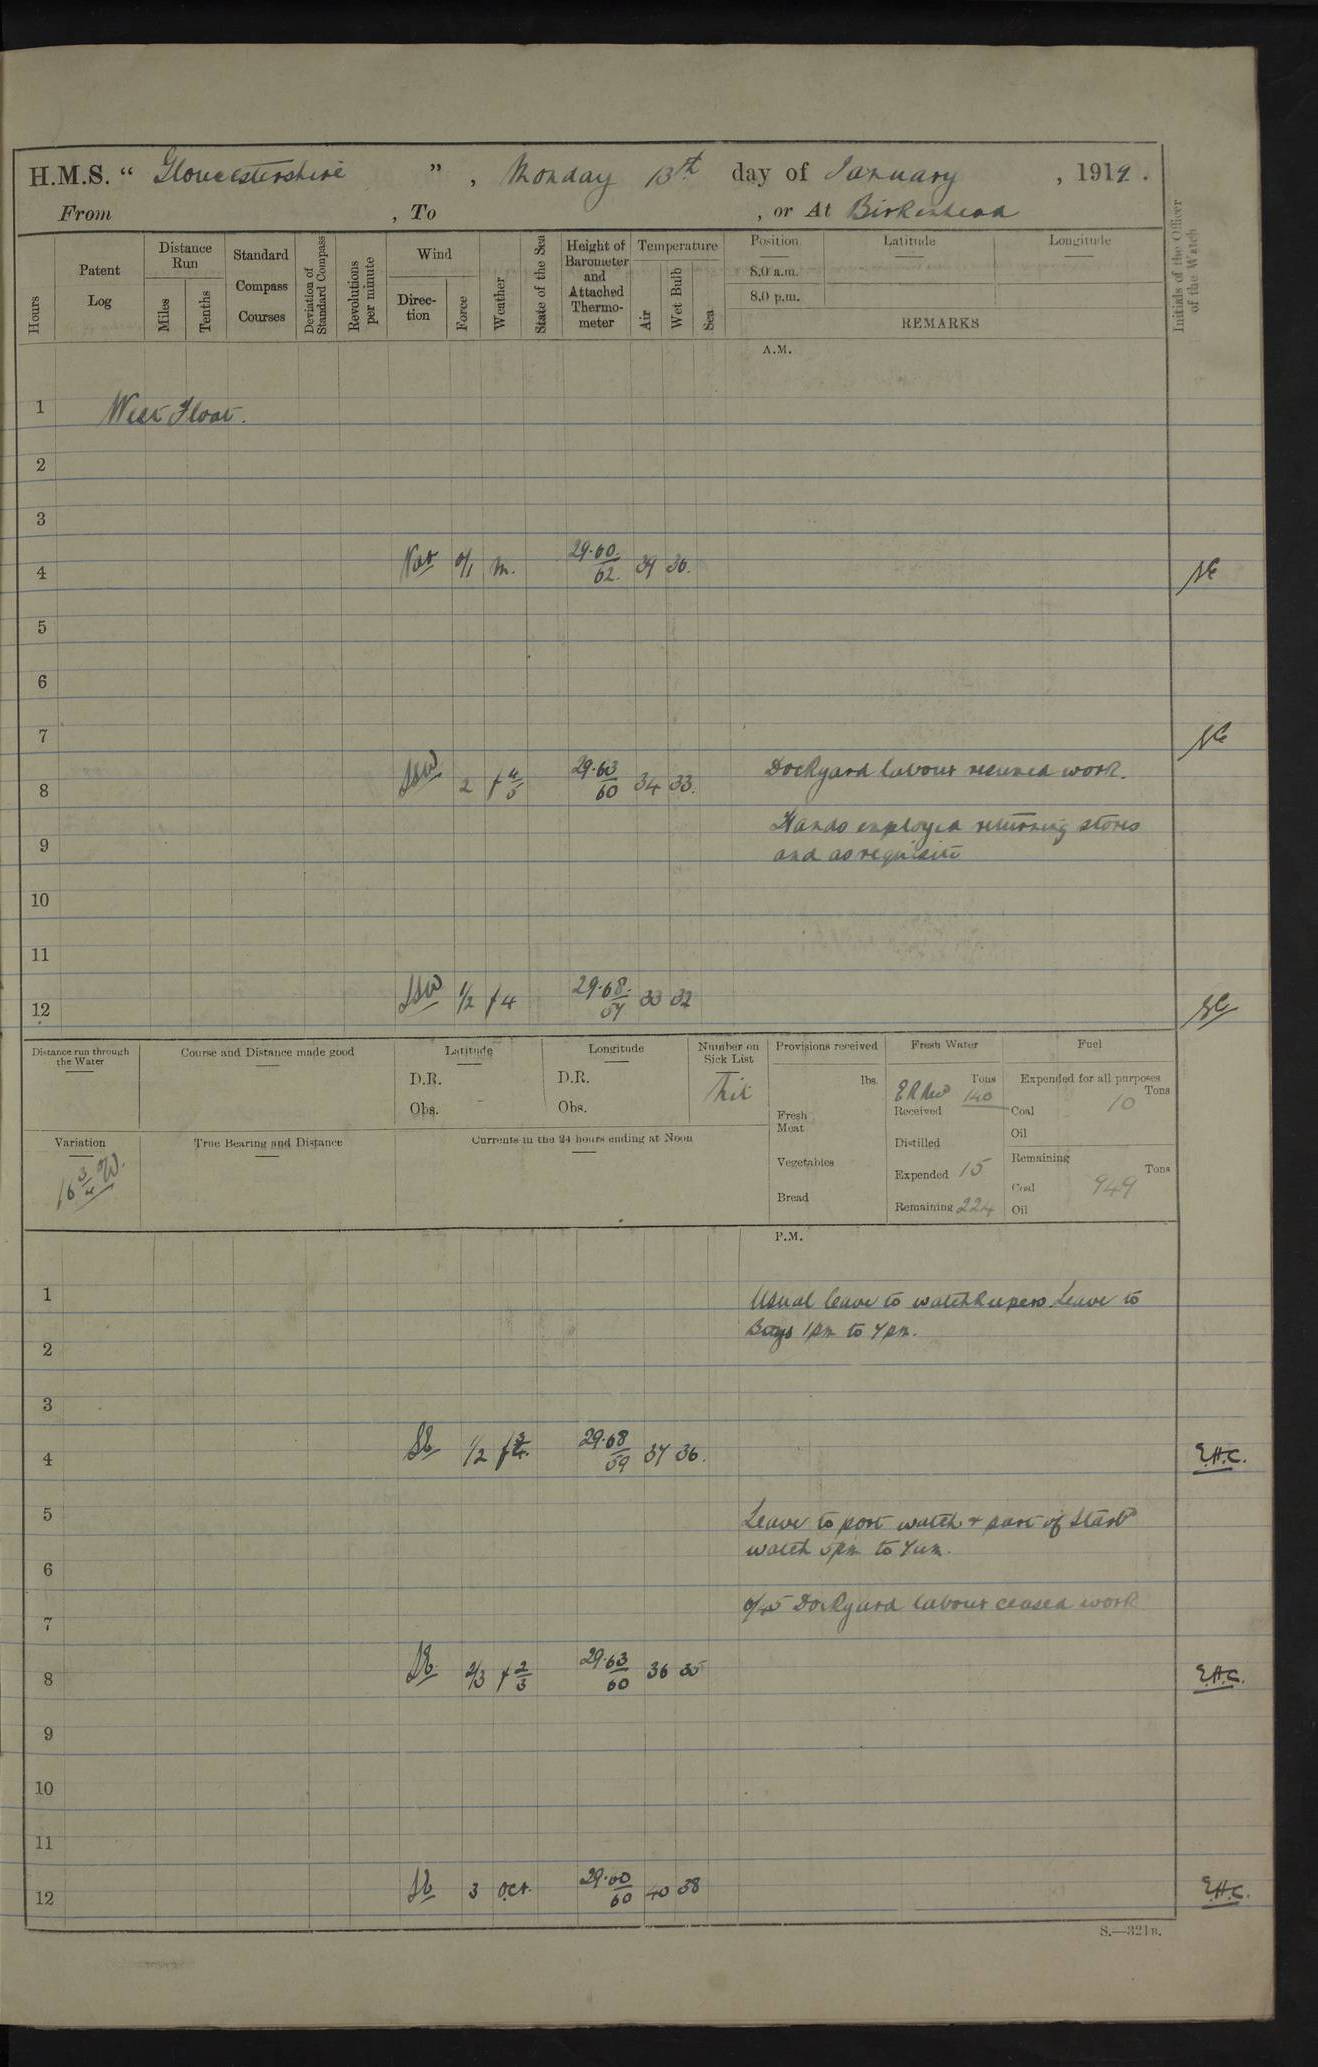 H.M.S. “ Gloucestershire ” , Monday 13th day of January , 1919 .
From , To , or At Birkenhead
Hours
Patent Log
Distance Run
Miles
Tenths
Standard Compass Courses
Deviation of Standard Compass
Revolutions per minute
Wind
Direc-tion
Force
Weather
State of the Sea
Height of Barometer and Attached Thermo-meter
Temperature
Air
Wet Bulb
Sea
Position
Latitude
Longitude
8.0 a.m.
8.0 p.m.
REMARKS
Initials of the Officer of the Watch
A.M.
1 West Float.
2
3
4 0/1 m. 29.60/62. 37 36.
5
6
7
8 SSW 2 f 4/5 29.63/60 34 33. Dockyard labour resumed work.
Hands employed returning stores
9 and as requisite
10
11
12 SSW 1/2 f 4 29.68./57 33 32
Distance run through the Water
Course and Distance made good
Latitude
D.R.
Obs.
Longitude
D.R.
Obs.
Number on Sick List
Provisions received
lbs.
Fresh Meat
Vegetables
Bread
Fresh Water
Tons
Received 140
Distilled
Expended 15
Remaining 224
Fuel
Expended for all purposes
Tons
Coal 10
Oil
Remaining
Tons
Coal 949
Oil
Variation
16 3/4 W.
True Bearing and Distance
Currents in the 24 hours ending at Noon
P.M.
1 Usual leave to watchkeepers. Leave to
Boys 1pm to 7pm.
2
3
4 SE 1/2 29.68/59 37 36. E.H.C.
5 Leave to port watch + part of Starbd
watch 5pm to 7am.
6
7 Dockyard labour ceased work
8 SE 2/3 f 2/3 29.63/60 36 35 E.H.C.
9
10
11
12 SE 3 29.60/60 40 38 E.H.C.
S.—321B.